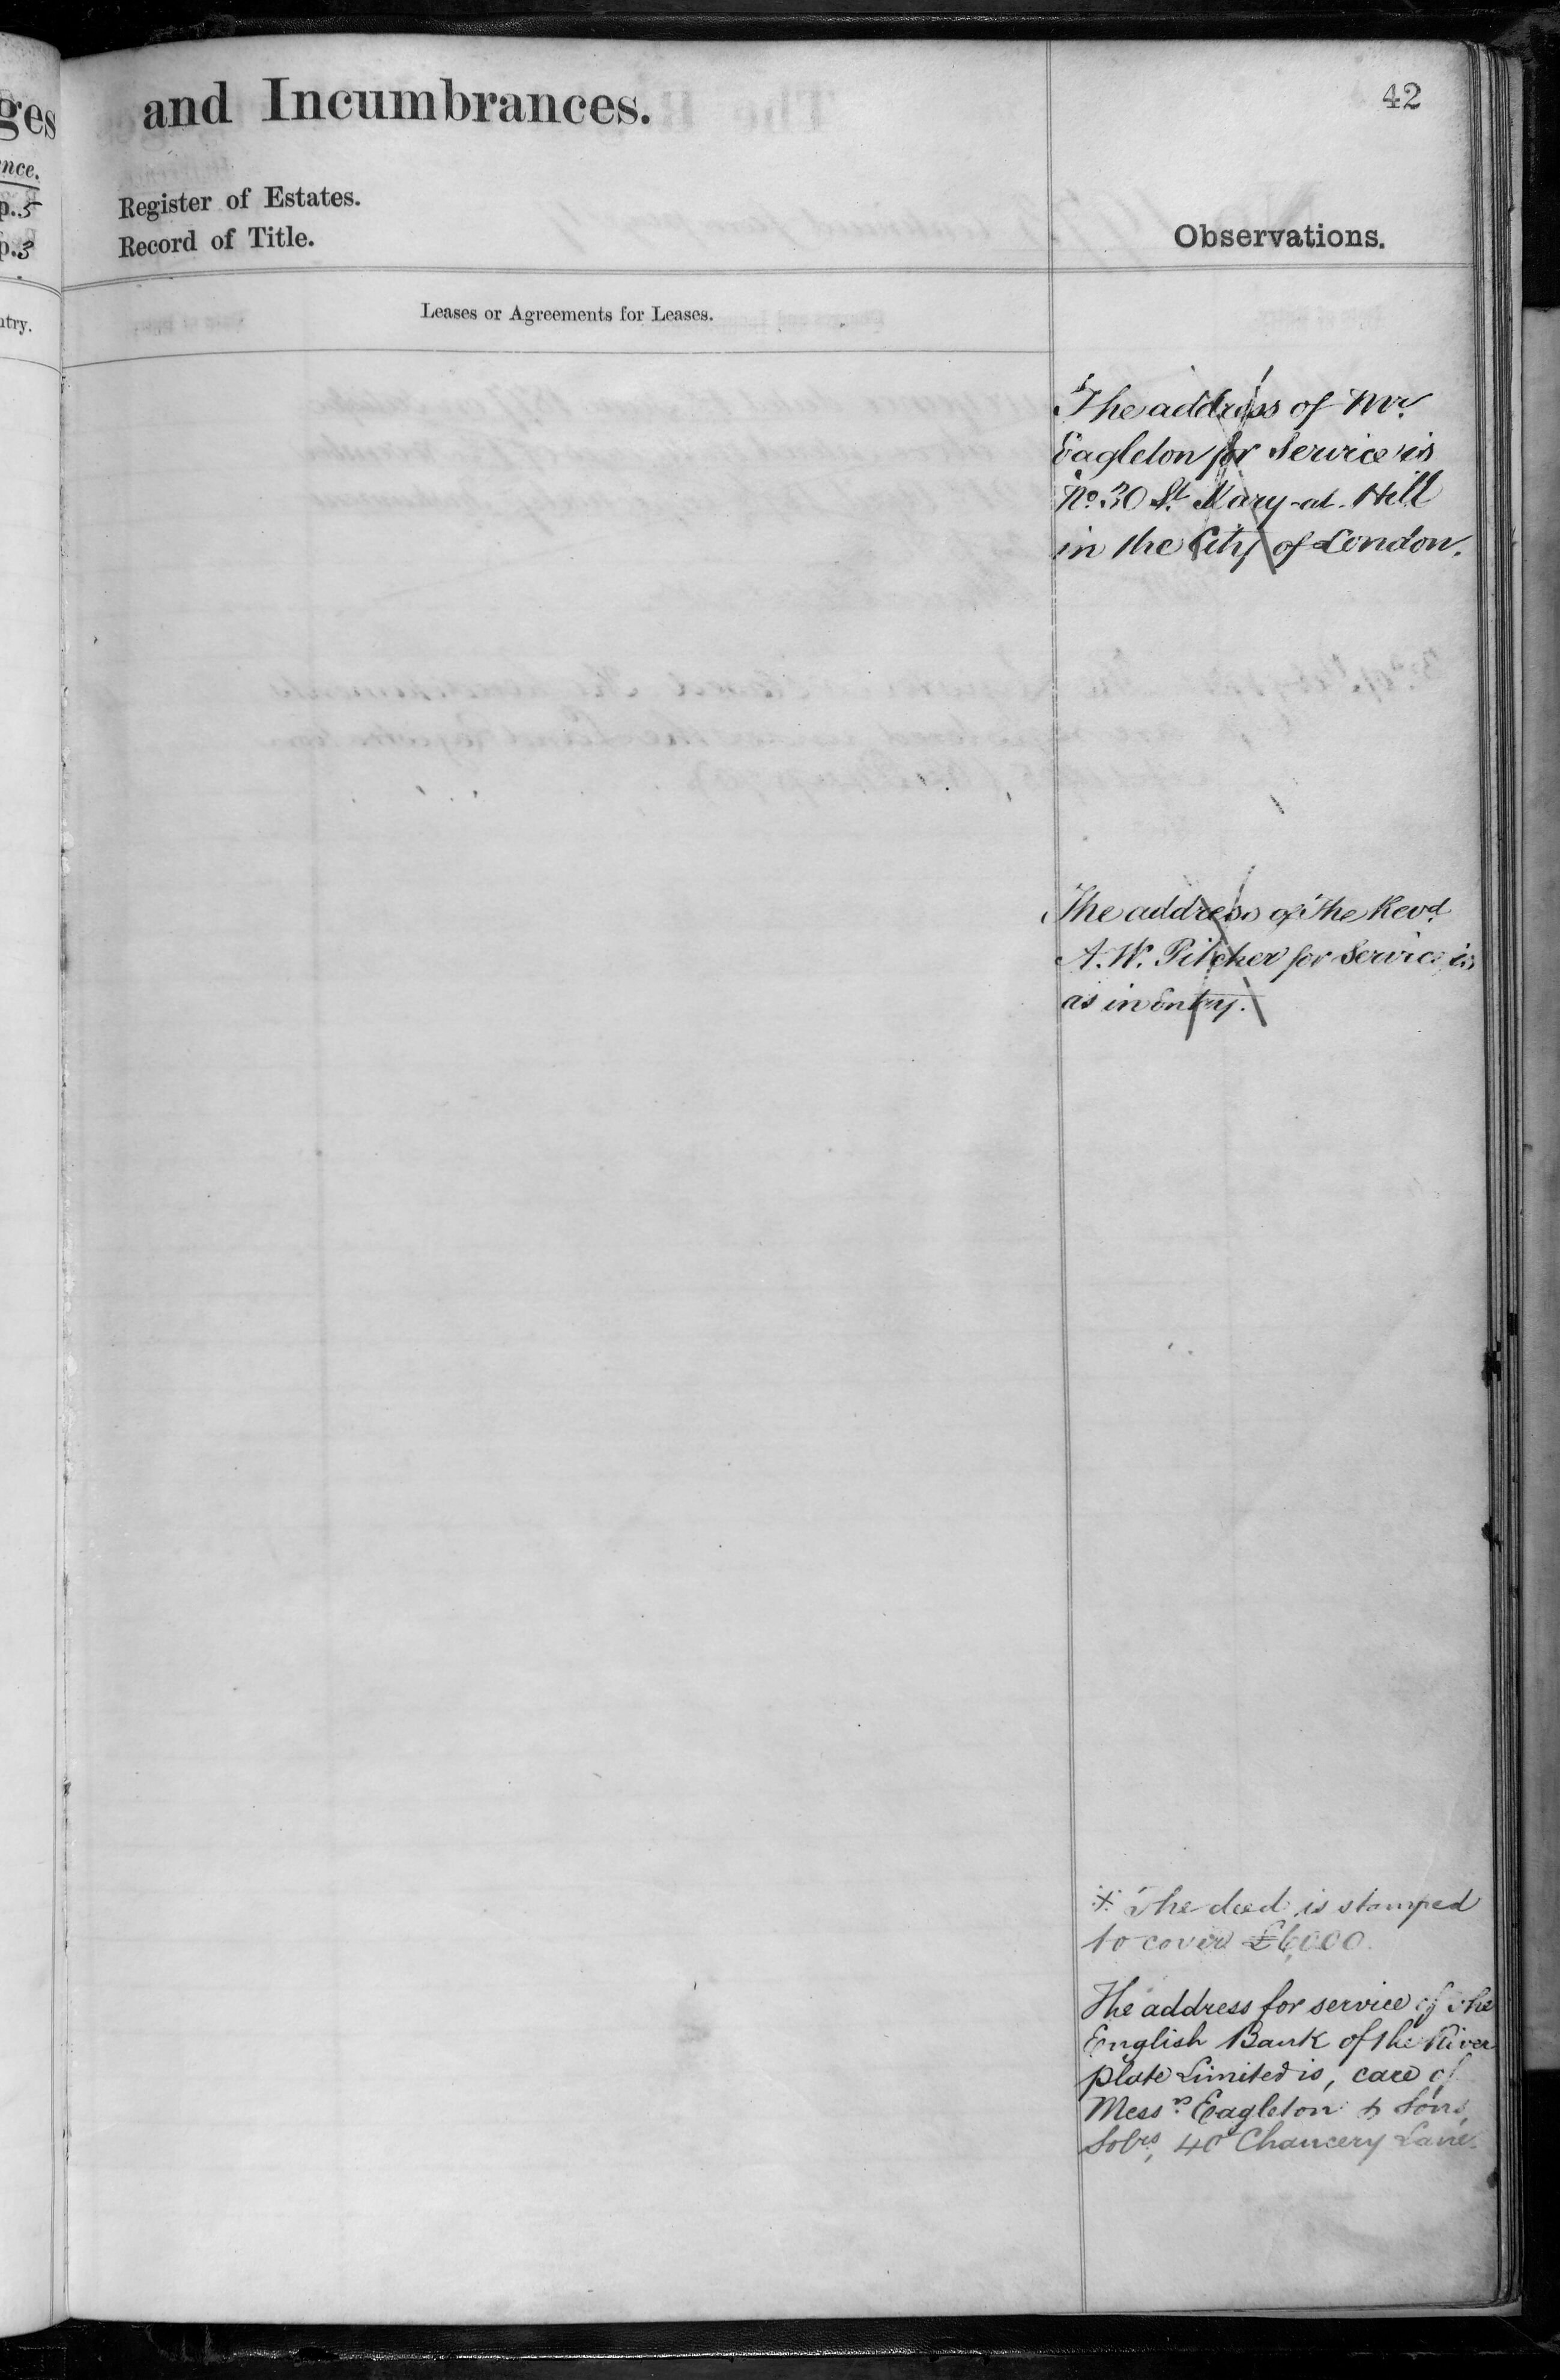 ges
and Incumbrances.
42
nce.
p. 5
p. 3
Register of Estates.
Record of Title.
Observations.
ntry.
Leases or Agreements for Leases.
The address of Mr.
Eagleton for Service is
No. 30 St. Mary-at-Hill
in the City of London.
The address of The Revd.
A. W. Pilcher for Service is
as in Entry.
The deed is stamped
to cover £6,000.
The address for service of the
English Bank of the River
plate Limited is, care of
Messrs. Eagleton & Sons,
Solrs, 40 Chancery Lane.